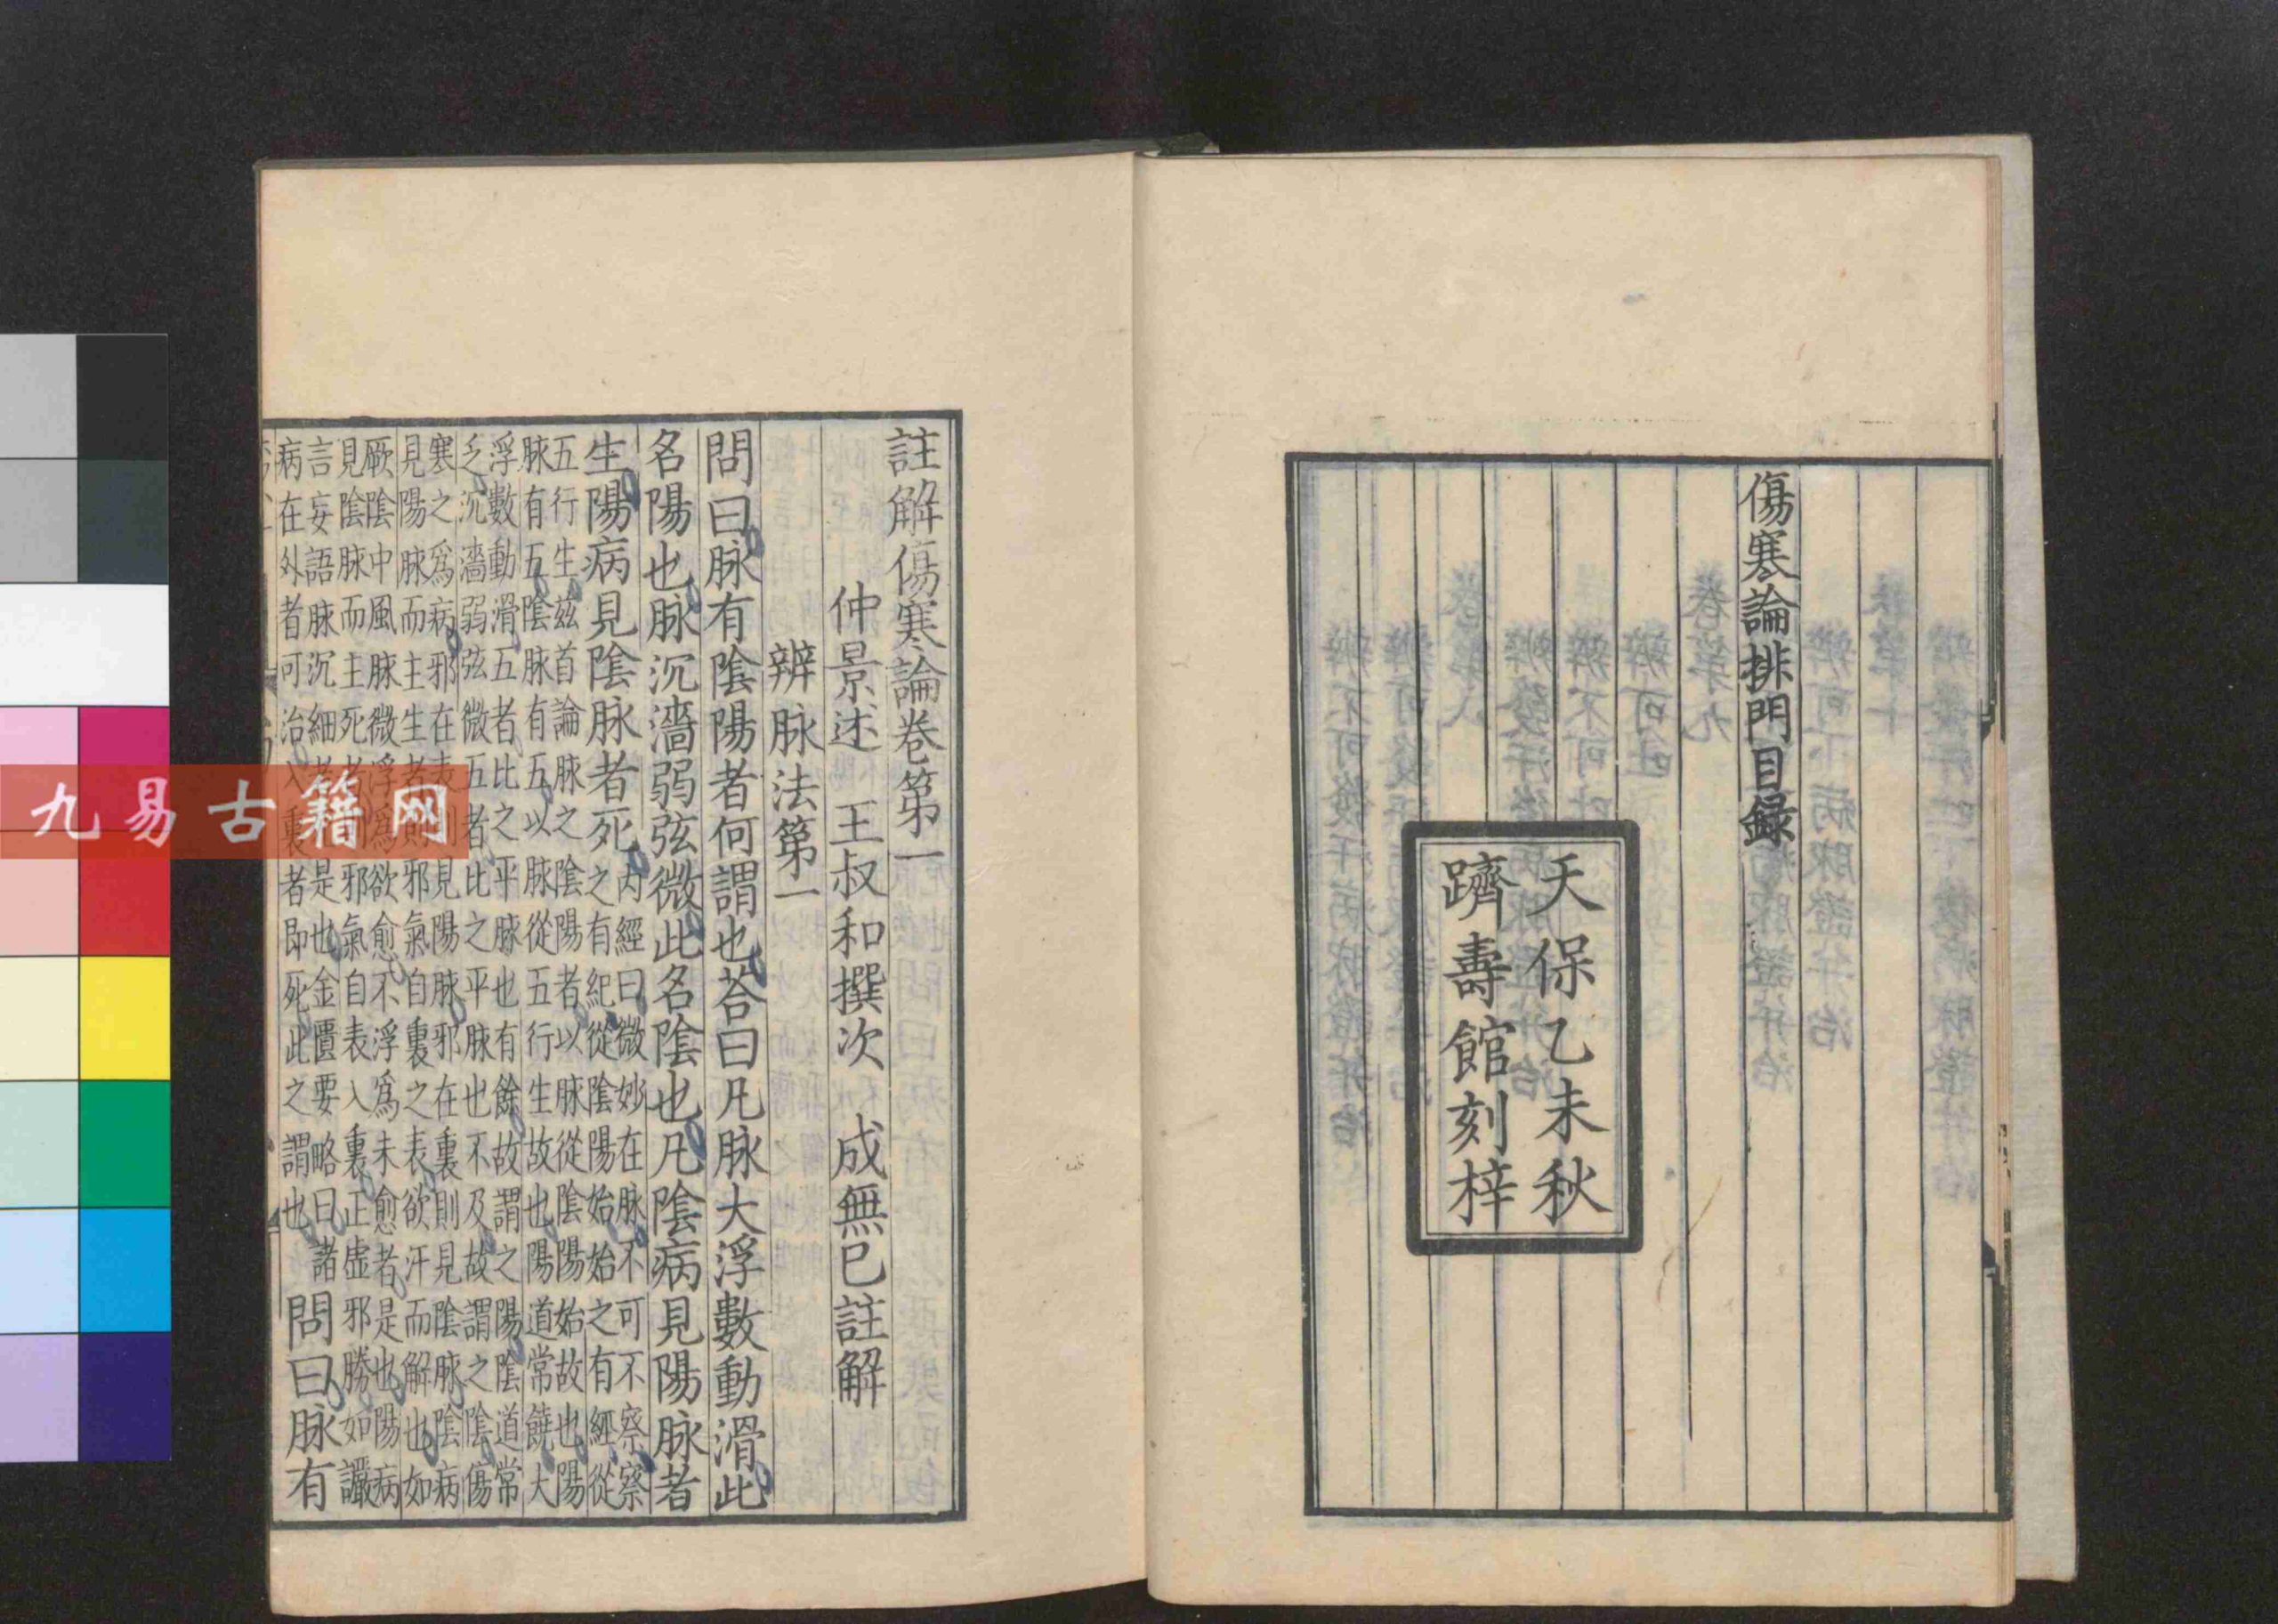 傷寒論排門目錄
天保乙未秋
躋壽館刻梓
註解傷寒論卷第一
仲景述　王叔和撰次　成無已註解
辨脉法第一
問曰脉有陰陽者何謂也荅曰凡脉大浮數動滑此
名陽也脉沉濇弱弦微此名陰也凡陰病見陽脉者
生陽病見陰脉者死
內經曰微妙在脉不可不察察
之有紀從陰陽始始之有經從
五行生茲首論脉之陰陽者以脉從陰陽始故也陽
脉有五陰脉有五以脉從五行生故也陽道常饒大
浮數動滑五者比之平脉也有餘故謂之陽陰道常
乏沉濇弱弦微五者比之平脉也不及故謂之陰傷
寒之爲病邪在表則見陽脉邪在裏則見陰脉陰病
見陽脉而主生者則邪氣自裏之表欲汗而解也如
厥陰中風脉微浮爲欲愈不浮爲未愈者是也陽病
見陰脉而主死者則邪氣自表入裏正虛邪勝如讝
言妄語脉沉細者是也金匱要略曰諸
病在外者可治入裏者即死此之謂也
問曰脉有
九易古籍网